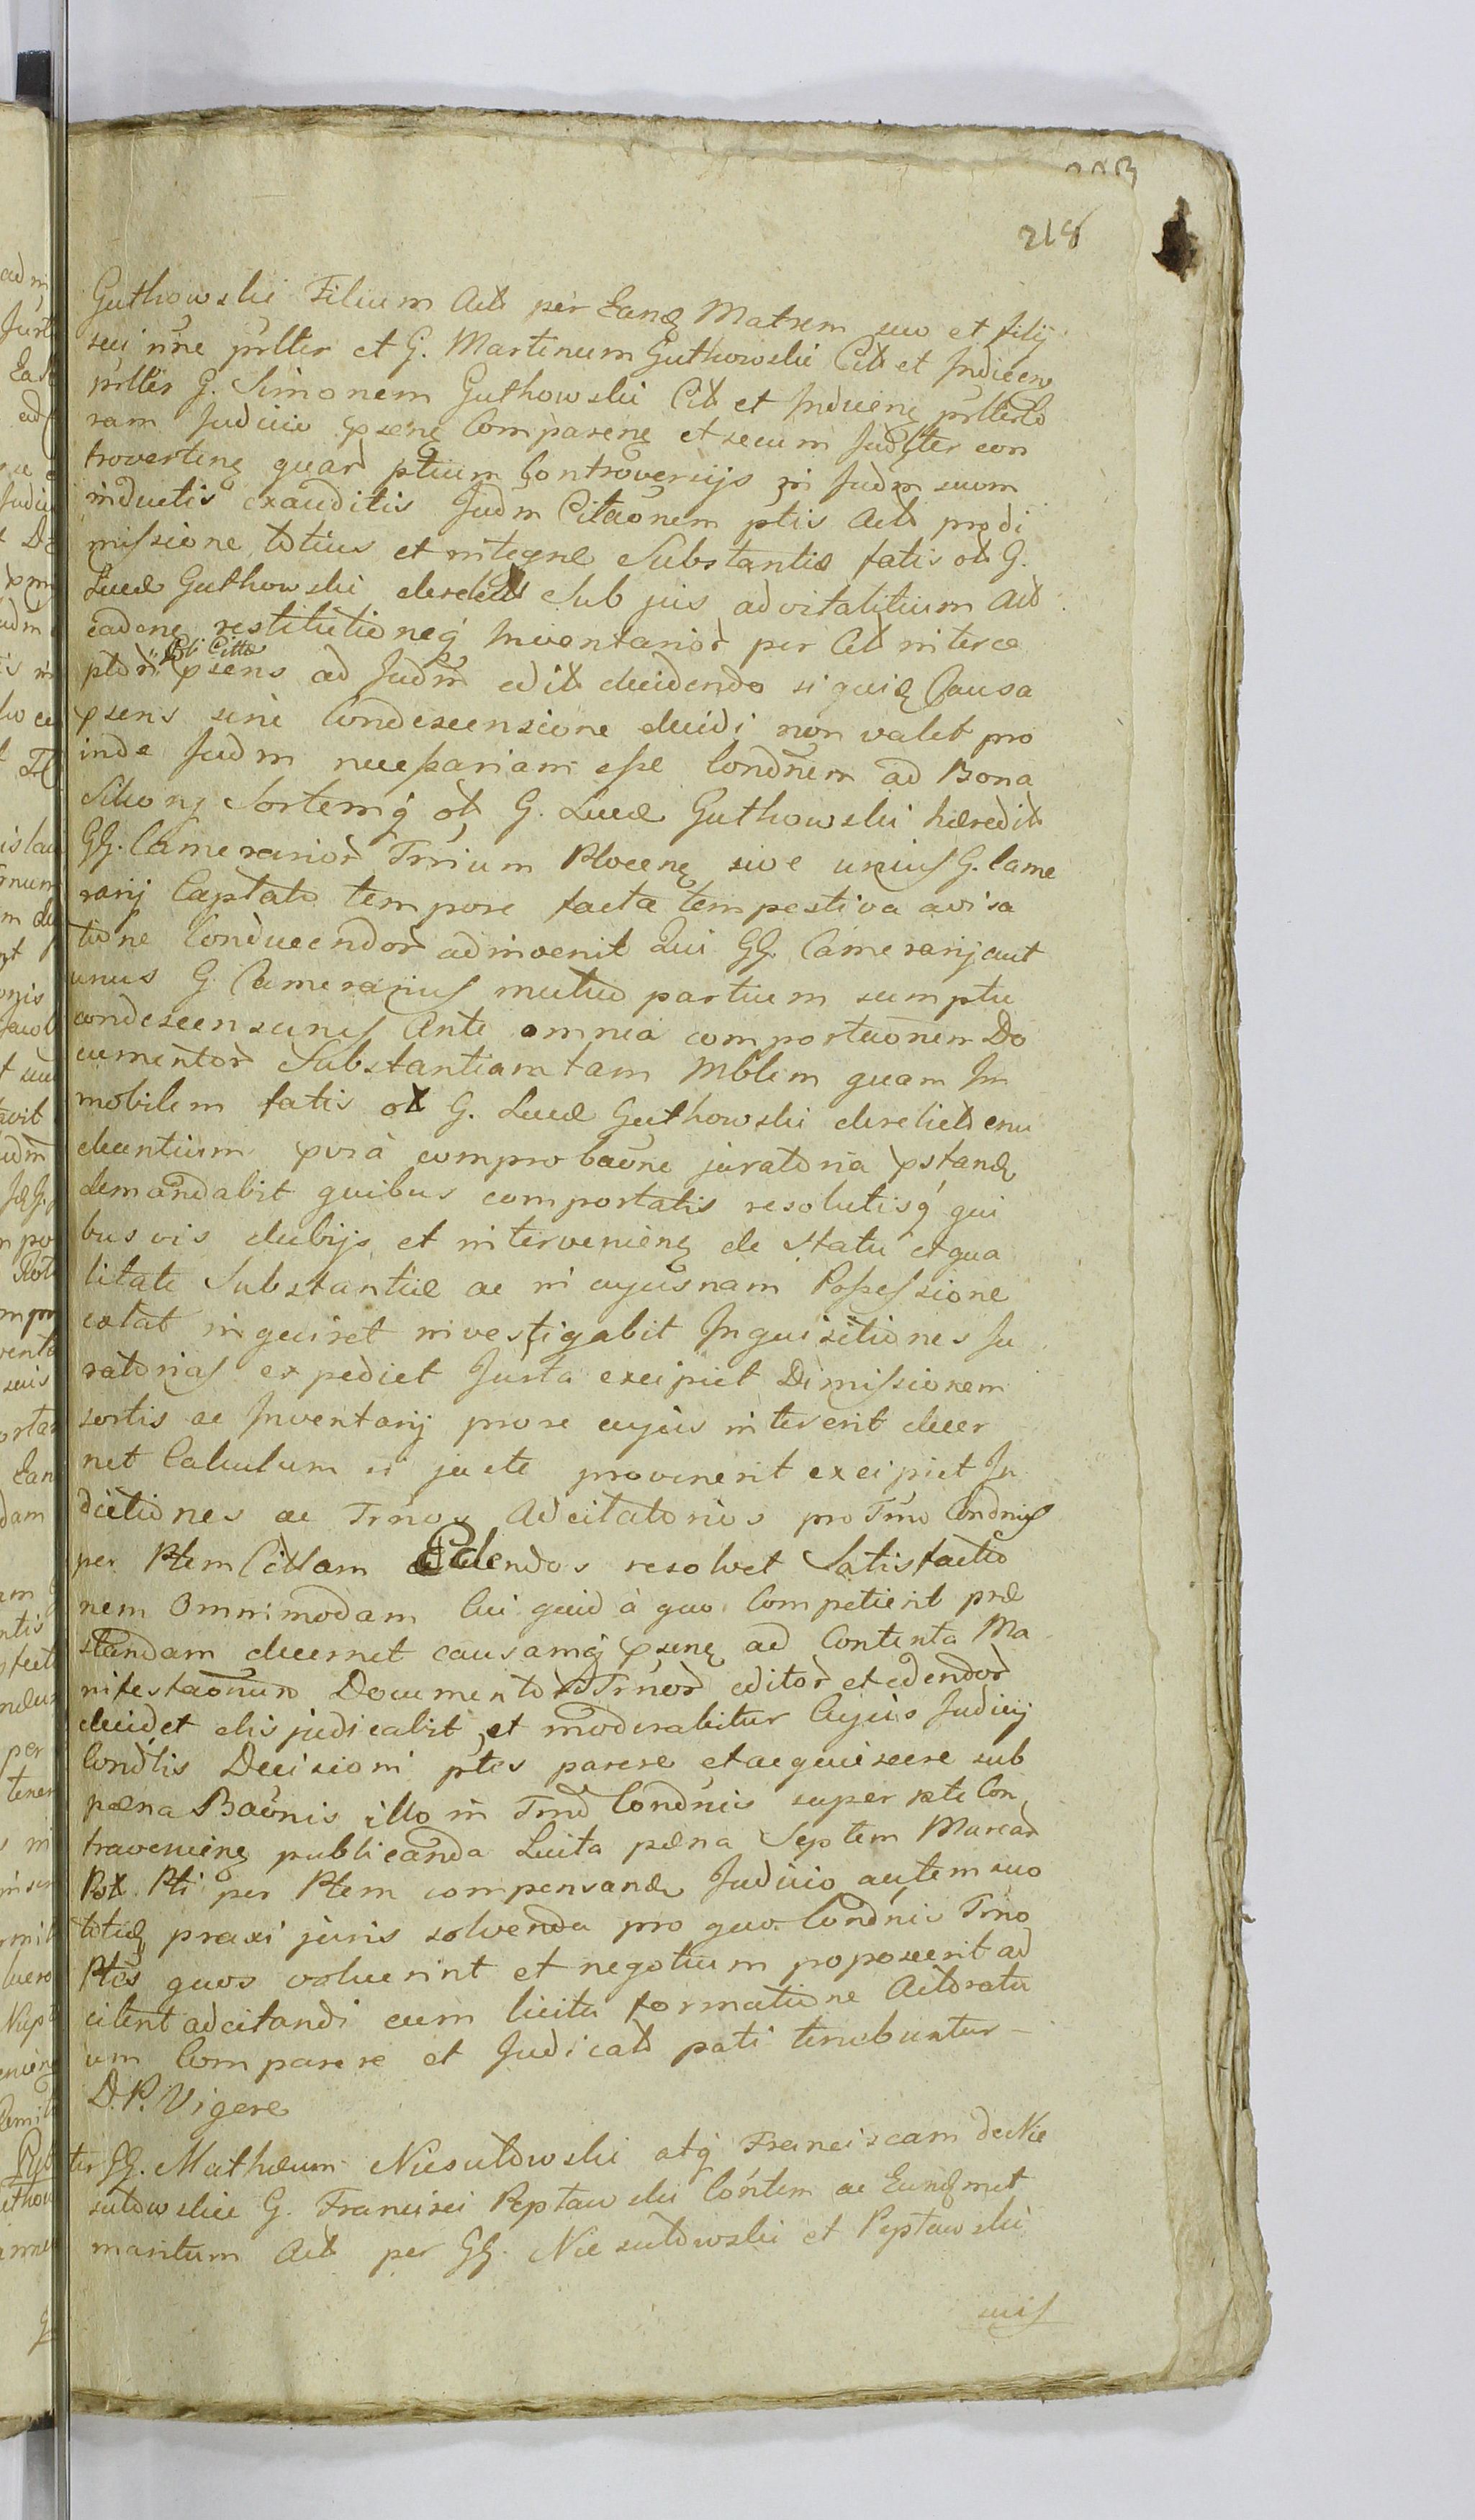 218
Guthowski Filium Actt per Eand Matrem suo et filij
sui nne prltter et G. Martinum Guthowski Citt et Indicen
prltter G. Simonem Guthowski Citt et Inducens prltter Co
ram Judicio psens Comparens et secum Judlter con
troverting quar ptium Controversijs in Judm suum
inductis exauditis Judm Citaonem ptis Actt pro di
missione totius et integræ Substantiæ fatis ott G.
Lucæ Guthowski derelict Sub jus advitalitium Actt
cadens restitutioneq Inventarior per Citt interce
ptor psens ad Judm edit decidendo si quid Causa
psens sine Condescensione decidi non valet pro
inde Judm necessariam esse Condnem ad Bona
Sikory Sortemq ott G. Lucæ Guthowski hæredit
GG. Camerarior Trrium Plocens sive unius G. Came
rarij Captato tempore facta tempestiva avisa
tione Conducendor adinvenit Qui GG. Camerarij aut
unus G. Camerarius mutuo partium sumptu
condescensuris Ante omnia comportaonem Do
cumentor Substantiam tam Mblem quam Im
mobilem fatis ott G. Lucæ Guthowski derelict enu
cleantium pvia comprobaone juratoria pstand
demandabit quibus comportatis resolutisq qui
busvis dubijs et interveniens de Statu et qua
litate Substantiæ ac in cujusnam Possessione
extat inquiret investigabit Inquisitiones Ju
ratorias expediet Justa excipiet Dimissionem
sortis ac Inventarij pro re cujus intererit decer
net Calculum si juste provenerit excipiet In
dictiones ac Trnos Adcitatorios pro Tmo Condnis
per Ptem Cittam Edendos resolvet Satisfactio
nem Omnimodam Cui quid à quo Competierit præ
standam decernet causamq psens ad Contenta Ma
nifestaonum Documentor Trnor editor et edendor
decidet disjudicabit et moderabitur Cujus Judicij
Condlis Decisioni ptes parere et acquiescere sub
pæna Baonis illo in Tmo Condnis super pte Con
traveniens publicanda Luita pæna Septem Marcar
Pott Pti per Ptem compensand Judicio autem suo
toties praxi juris solvenda pro quo Condnis Tmo
Ptes quos voluerint et negotium poposcerit ad
citent adcitandi cum licita formatione Actoratu
um Comparere et Judicatt pati tenebuntur
D. P. Vigore
ter GG. Mathæum Niesutowski atq Franciscam de Nie
sutowskie G. Francisci Peptawski Cóntem ac Eundmet
maritum Actt per GG. Niesutowski et Peptawski
suis